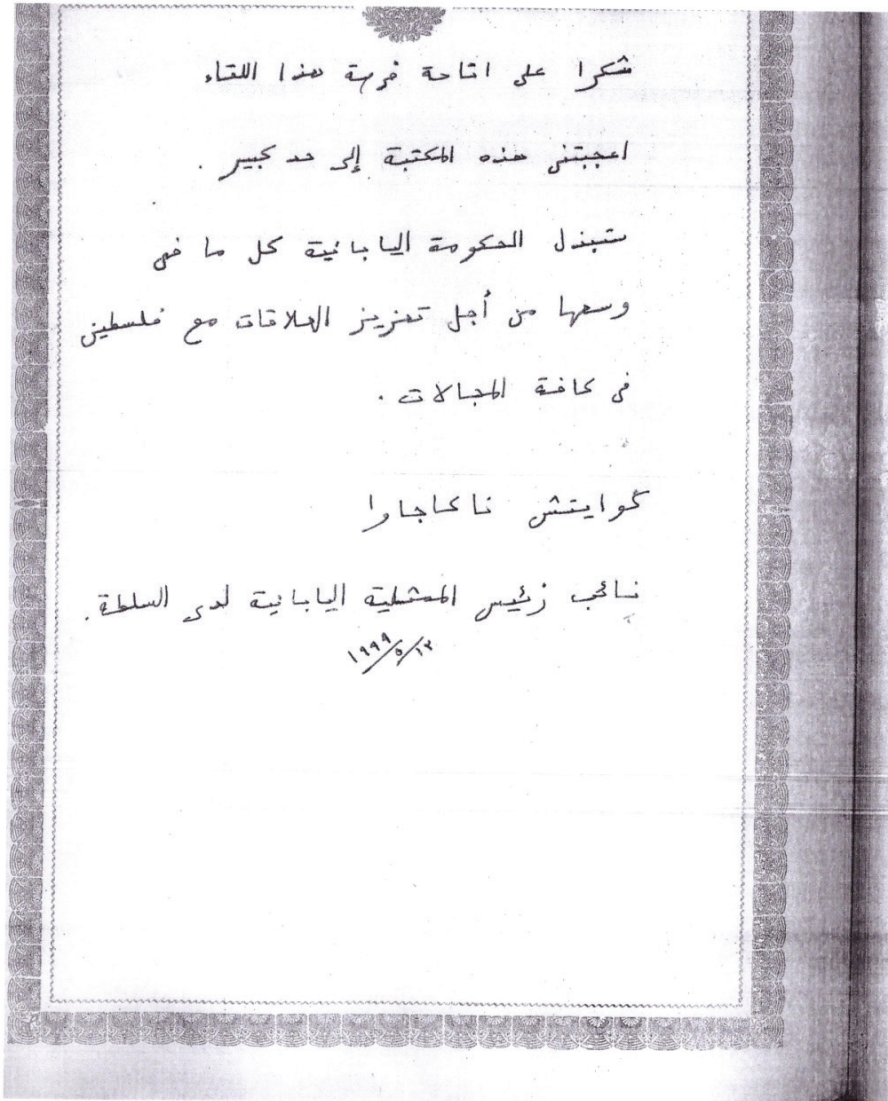 شكرا على اتاحة فرصة هذا اللقاء
اعجبتنى هذه المكتبة إلى حد كبير .
ستبذل الحكومة اليابانية كل ما فى
وسعها من أجل تعزيز العلاقات مع فلسطين
فى كافة المجالات .
كوايتش ناكاجاوا
نائب رئيس الممثلية اليابانية لدى السلطة .
١٩٩٩/٥/١٣